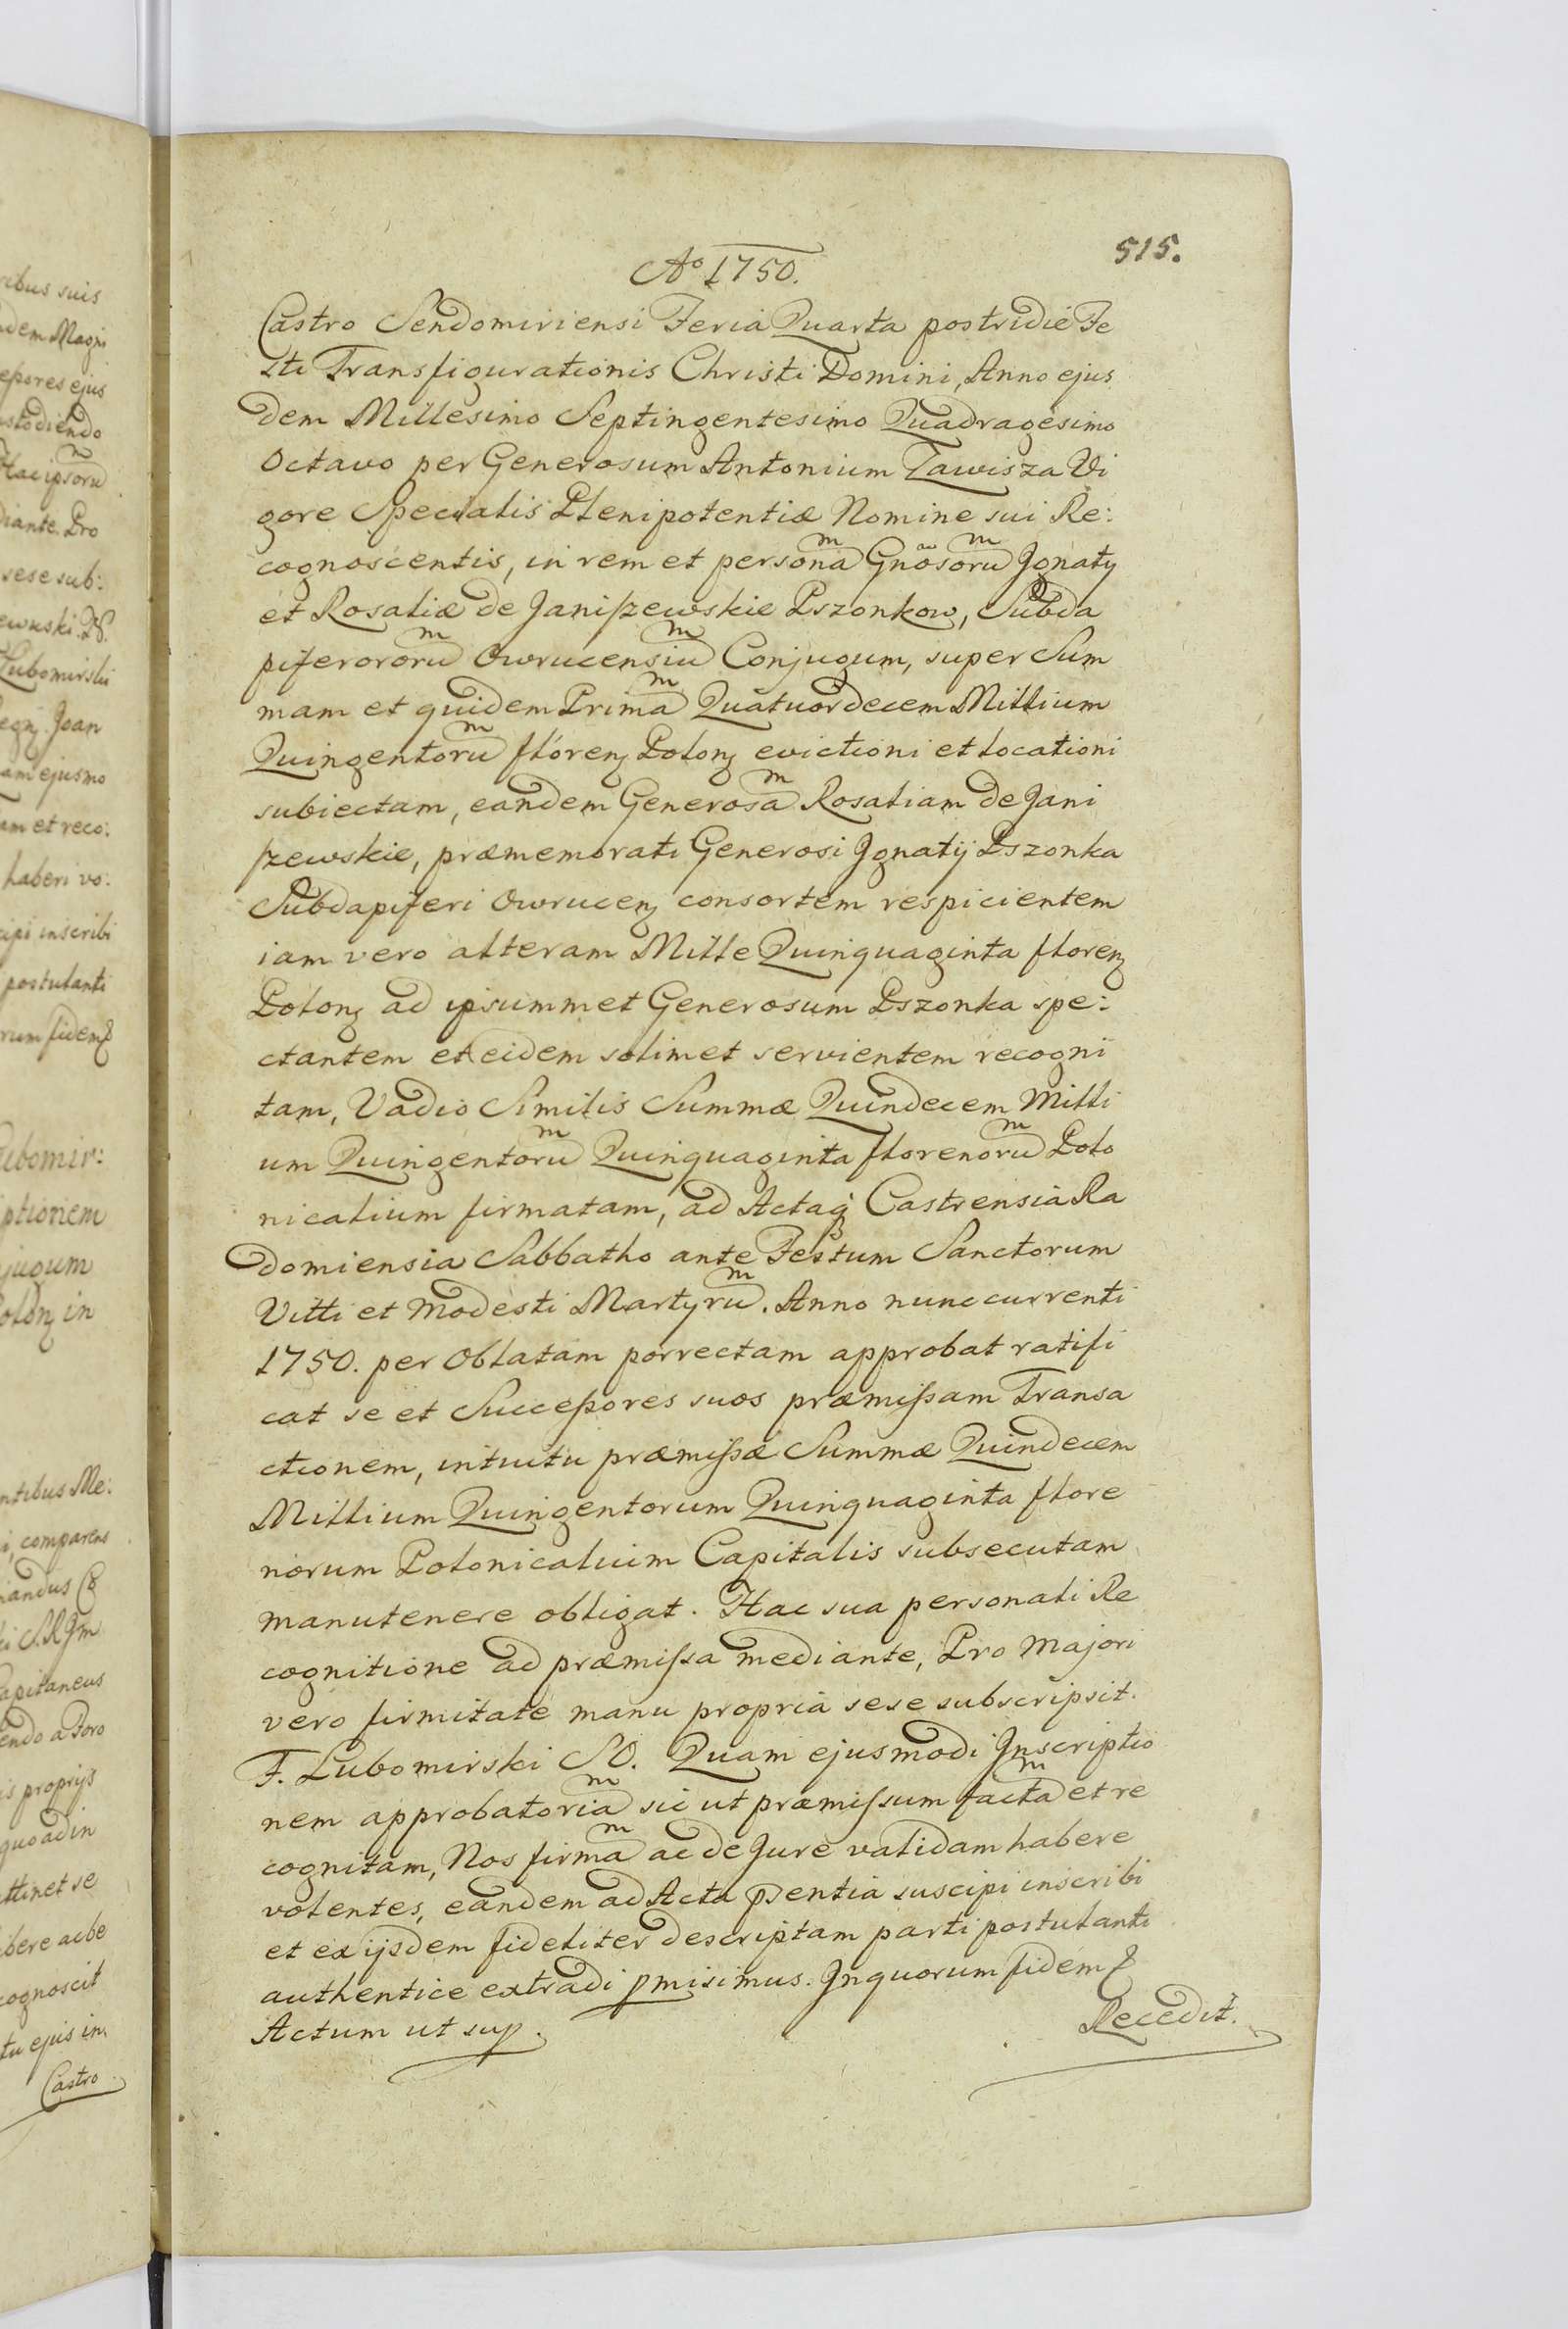 515.
Aº 1750.
Castro Sendomiriensi Feria Quarta postridie Fe
sti Transfigurationis Christi Domini, Anno ejus
dem Millesimo Septingentesimo Quadragesimo
Octavo per Generosum Antonium Zawisza Vi
gore Specialis Plenipotentiæ Nomine sui Re:
cognoscentis, in rem et personam Gnosorum Jgnaty
et Rosaliæ de Janiszewskie Pszonkow, Subda
piferororum Owrucensium Conjugum, super Sum
mam et quidem Primam Quatuordecem Millium
Quingentorum floren Polon evictioni et locationi
subiectam, eandem Generosam Rosaliam de Jani
szewskie, præmemorati Generosi Jgnatij Pszonka
Subdapiferi Owrucen consortem respicientem
iam vero alteram Mille Quinquaginta floren
Polon ad ipsummet Generosum Pszonka spe:
ctantem et eidem solimet servientem recogni
tam, Vadio Similis Summæ Quindecem Milli
um Quingentorum Quinquaginta florenorum Polo
nicalium firmatam, ad Actaq Castrensia Ra
domiensia Sabbatho ante Festum Sanctorum
Vitti et Modesti Martyrum. Anno nunc currenti
1750. per Oblatam porrectam approbat ratifi
cat se et Successores suos præmissam Transa
ctionem, intuitu præmissæ Summæ Quindecem
Millium Quingentorum Quinquaginta flore
norum Polonicalium Capitalis subsecutam
manutenere obligat. Hac sua personali Re
cognitione ad præmissa mediante, Pro Majori
vero firmitate manu propria sese subscripsit.
F. Lubomirski SO. Quam ejusmodi Jnscriptio
nem approbatoriam sic ut præmissum factam et re
cognitam, Nos firmam ac de Jure validam habere
volentes, eandem ad Acta pntia suscipi inscribi
et ex ijsdem fideliter descriptam parti postulanti
authentice extradi pmisimus. Jn quorum fidem
Actum ut sup.
Recedit.
ribus suis
dem Magni
essores ejus
stodiendo
Hac ipsorum
diante. Pro
sese sub:
Lubomirski
Joan
am ejusmo
am et reco:
haberi vo:
cipi inscribi
postulanti
rum fidem
ubomir:
ptionem
jugum
olon in
ntibus Me:
i, comparens
andus
apitaneus
endo a Foro
is proprijs
quo ad in
ttinet se
bere ac be
cognoscit
tu ejus in
Castro